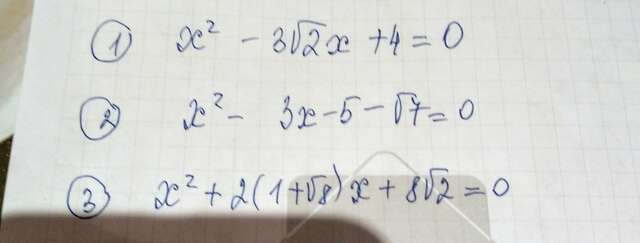 ① x² - 3√2x + 4 = 0
② x² - 3x - 5 - √7 = 0
③ x² + 2(1+√8)x + 8√2 = 0